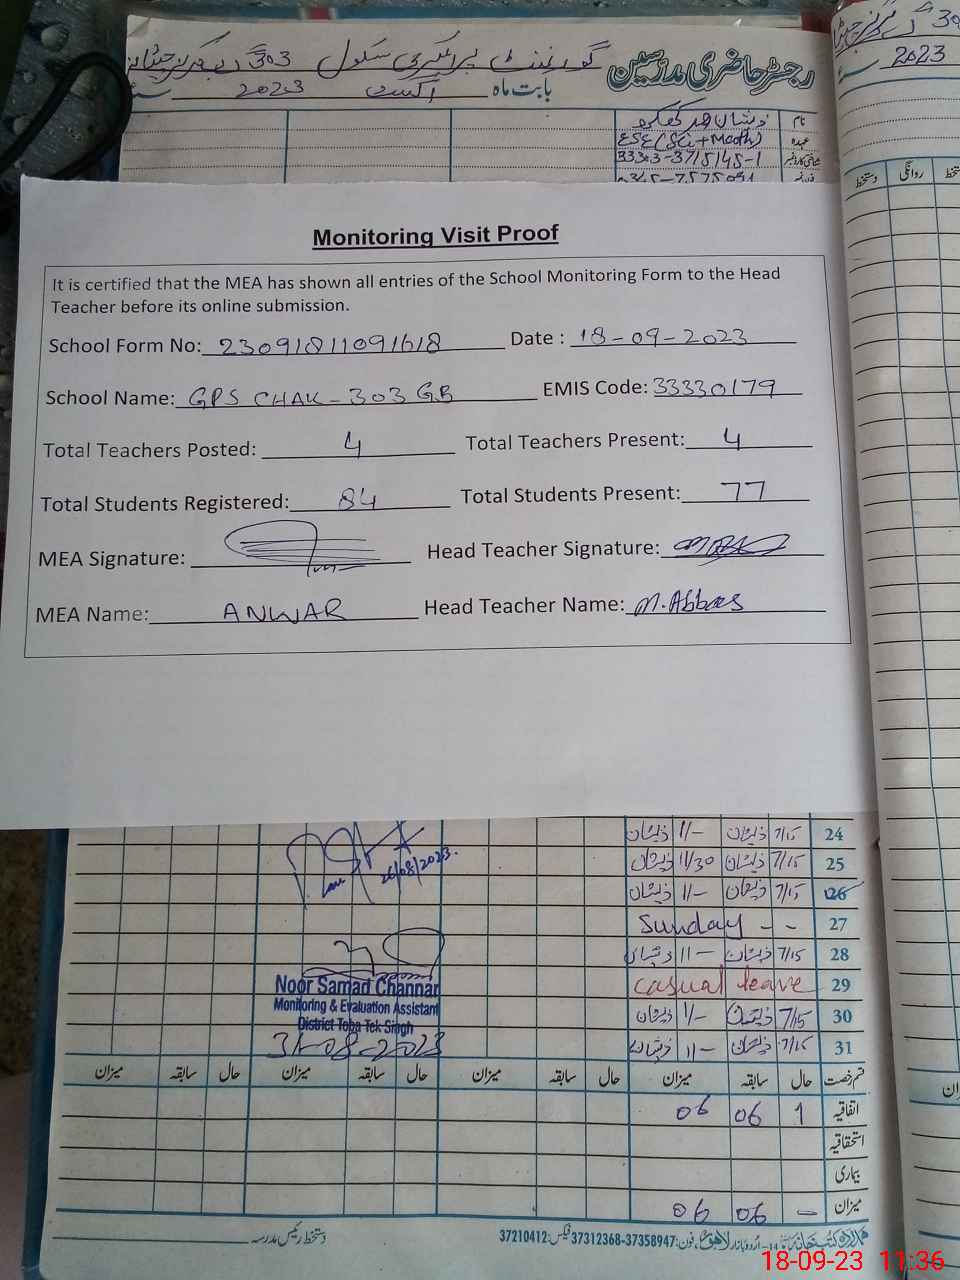 رجسٹر حاضری مدرسین گورنمنٹ پرائمری سکول 303
بابت ماہ اگست 2023
2023
نام
عہدہ ESE (Sci + Math)
33303-3715145-1
0345-7575091
دستخط روانگی
Monitoring Visit Proof
It is certified that the MEA has shown all entries of the School Monitoring Form to the Head
Teacher before its online submission.
School Form No: 23091811091618 Date : 18-09-2023
School Name: GPS CHAK-303 GB EMIS Code: 33330179
Total Teachers Posted: 4 Total Teachers Present: 4
Total Students Registered: 84 Total Students Present: 77
MEA Signature: Head Teacher Signature:
MEA Name: ANWAR Head Teacher Name: M.Abbas
24 7/15 ذیشان 1/- ذیشان
25 7/15 ذیشان 11/30 ذیشان
26 7/15 ذیشان 11- ذیشان
26/08/2023
27 - - Sunday
28 7/15 ذیشان 11- ذیشان
29 casual leave
30 7/15 ذیشان 1/- ذیشان
31 7/15 ذیشان 11- ذیشان
Noor Samad Channar
Monitoring & Evaluation Assistant
District Toba Tek Singh
31-08-2023
قسم رخصت حال سابقہ میزان حال سابقہ میزان حال سابقہ میزان
اتفاقیہ 1 06 06
استحقاقیہ
بیماری
میزان - 06 06
اردو بازار لاہور، فون: 37358947-37312368 فیکس: 37210412
دستخط رئیس مدرسہ
18-09-23 11:36